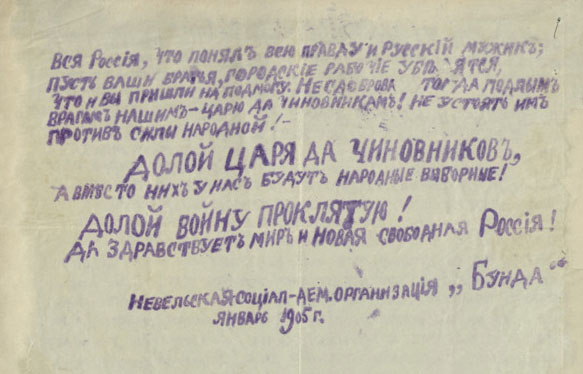 Вся Россiя, что понялъ всю правду и русскiй мужикъ;
пусть ваши братья, городскiе рабочiе убѣдятся,
что и вы пришли на подмогу. Несдобровать тогда подлымъ
врагамъ нашимъ – царю да чиновникамъ! Не устоять имъ
противъ силы народной! –
Долой царя да чиновниковъ,
а вмѣсто нихъ у насъ будутъ народные выборные!
Долой войну проклятую!
Да здравствуетъ миръ и новая свободная Россiя!
Невельская соцiал-дем. организацiя „Бунда“
январь 1905 г.